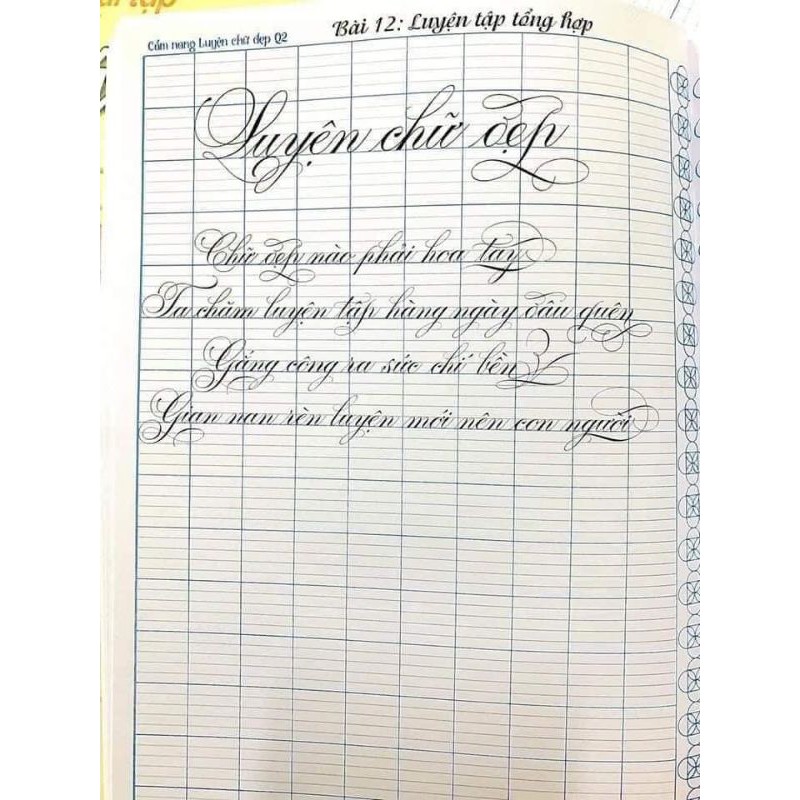 Bài 12: Luyện tập tổng hợp
Cẩm nang Luyện chữ đẹp Q2
Luyện chữ đẹp
Chữ đẹp nào phải hoa tay
Ta chăm luyện tập hàng ngày đâu quên
Gắng công ra sức chí bền
Gian nan rèn luyện mới nên con người